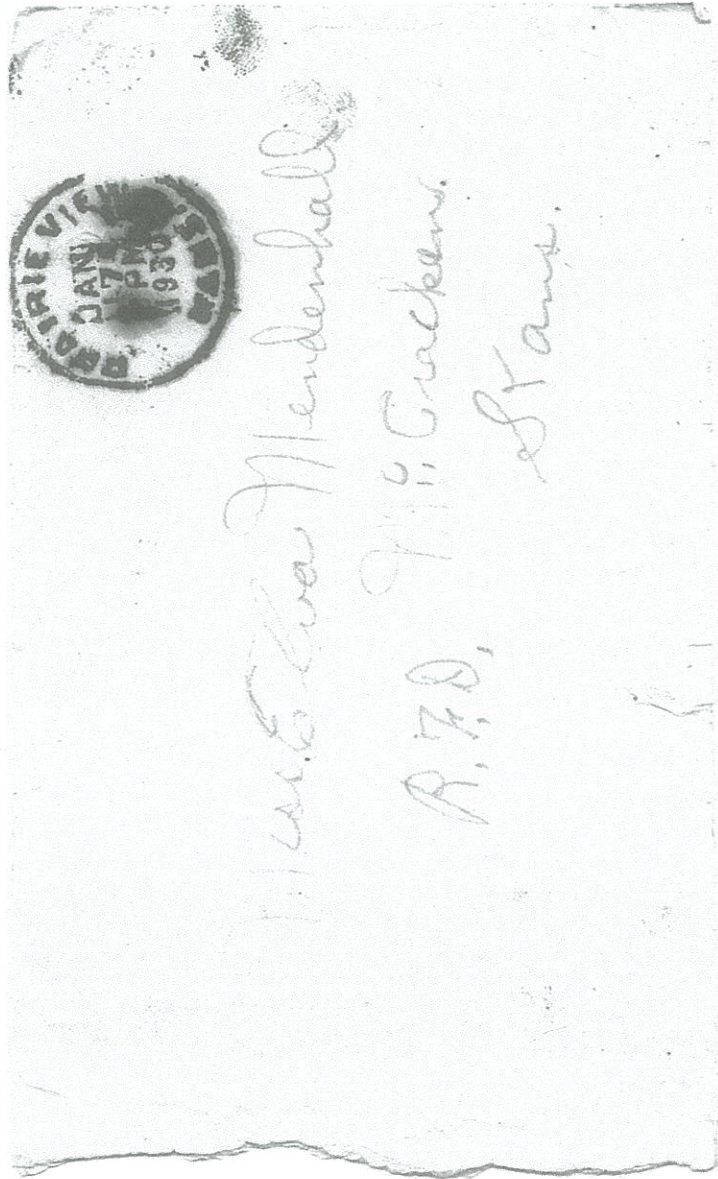 PRAIRIE VIEW KANS.
JAN
7
PM
1930
Miss. Elva Mendenhall
Mc Cracken.
R.F.D,
Kans.